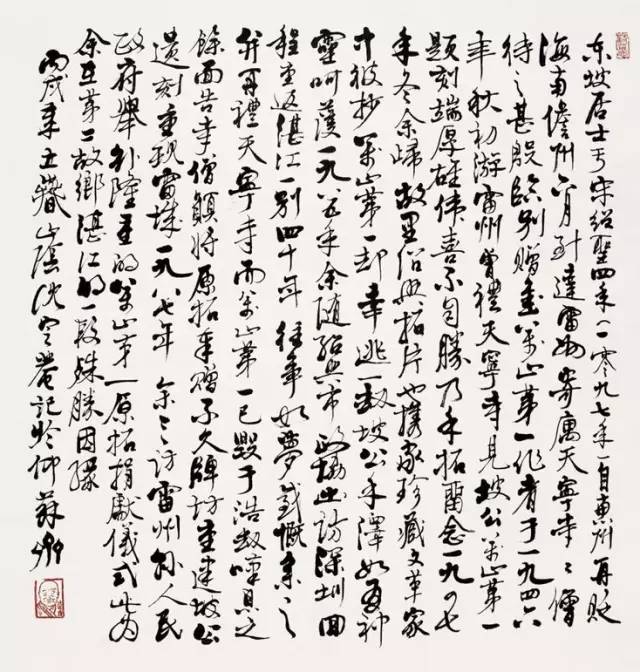 东坡居士于宋绍圣四年(一〇九七年)自惠州再贬
海南儋州六月到达雷州寄寓天宁寺寺僧
待之甚殷临别赠书万山第一作者于一九四六
年秋初游雷州曾礼天宁寺见坡公万山第一
题刻端厚雄伟喜不自胜乃手拓留念一九四七
年冬余归故里俗兴拓片也携家珍藏文革家
中被抄万山第一却幸逃一劫坡公手泽如有神
灵呵护一九八五年余随绍兴市政协出访深圳回
程重返湛江一别四十年往事如梦感慨系之
并再礼天宁寺而万山第一已毁于浩劫叹息之
馀面告寺僧愿将原拓奉赠不久牌坊重建坡公
遗刻重现雷城一九八七年余又访雷州县人民
政府举行隆重的万山第一原拓捐献仪式此为
余在第二故乡湛江的一段殊胜因缘
丙戌年立春山阴沈定庵记于仰苏斋